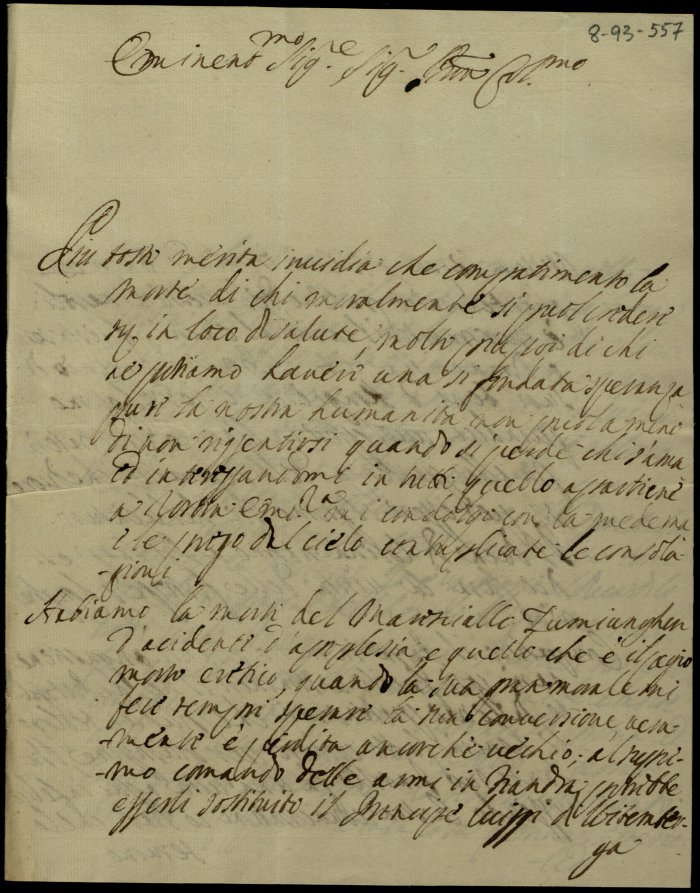 8-93-557
Eminent.mo Sig.re Sig.r
Piu tosto merita invidia che compatimento la
morte di chi moralmente si può credere
in loco di salute, molto più poi di chi
reputiamo havere una si fondata speranza
pure la nostra humanità non può a meno
di non risentirsi quando si perde chi s'ama
ed interessandomi in tutto quello apartiene
a Vostra Em.za mi condolgo con la medema
e le prego dal cielo contuplicate le consola
-zioni
Habbiamo la morte del Maresciallo Fumianghen
d'acidente d'apoplesia e quello che è il pegio
morto eretico, quando la sua gran morale mi
fece sempre sperare la sua conversione, vera-
-mente è perdita ancorche vechio; al supre-
-mo comando delle armi in Fiandra potrebbe
esserli sostituito il Principe Luiggi di Wirember-
ga